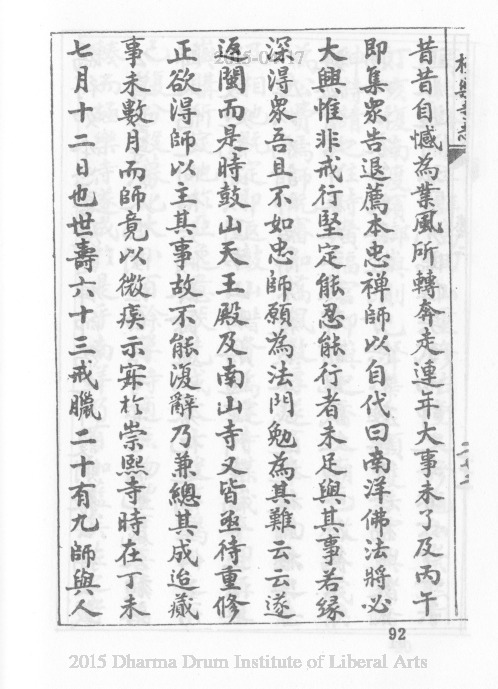 極樂寺志
昔昔自憾為業風所轉奔走連年大事未了及丙午
即集眾告退薦本忠禅師以自代曰南洋佛法將必
大興惟非戒行堅定能忍能行者未足與其事若緣
深得眾吾且不如忠師願為法門勉為其難云云遂
返閩而是時鼓山天王殿及南山寺又皆亟待重修
正欲得師以主其事故不能復辭乃兼總其成迨藏
事未數月而師竟以微疾示寂於崇熙寺時在丁未
七月十二日也世壽六十三戒臘二十有九師與人
92
2015 Dharma Drum Institute of Liberal Arts